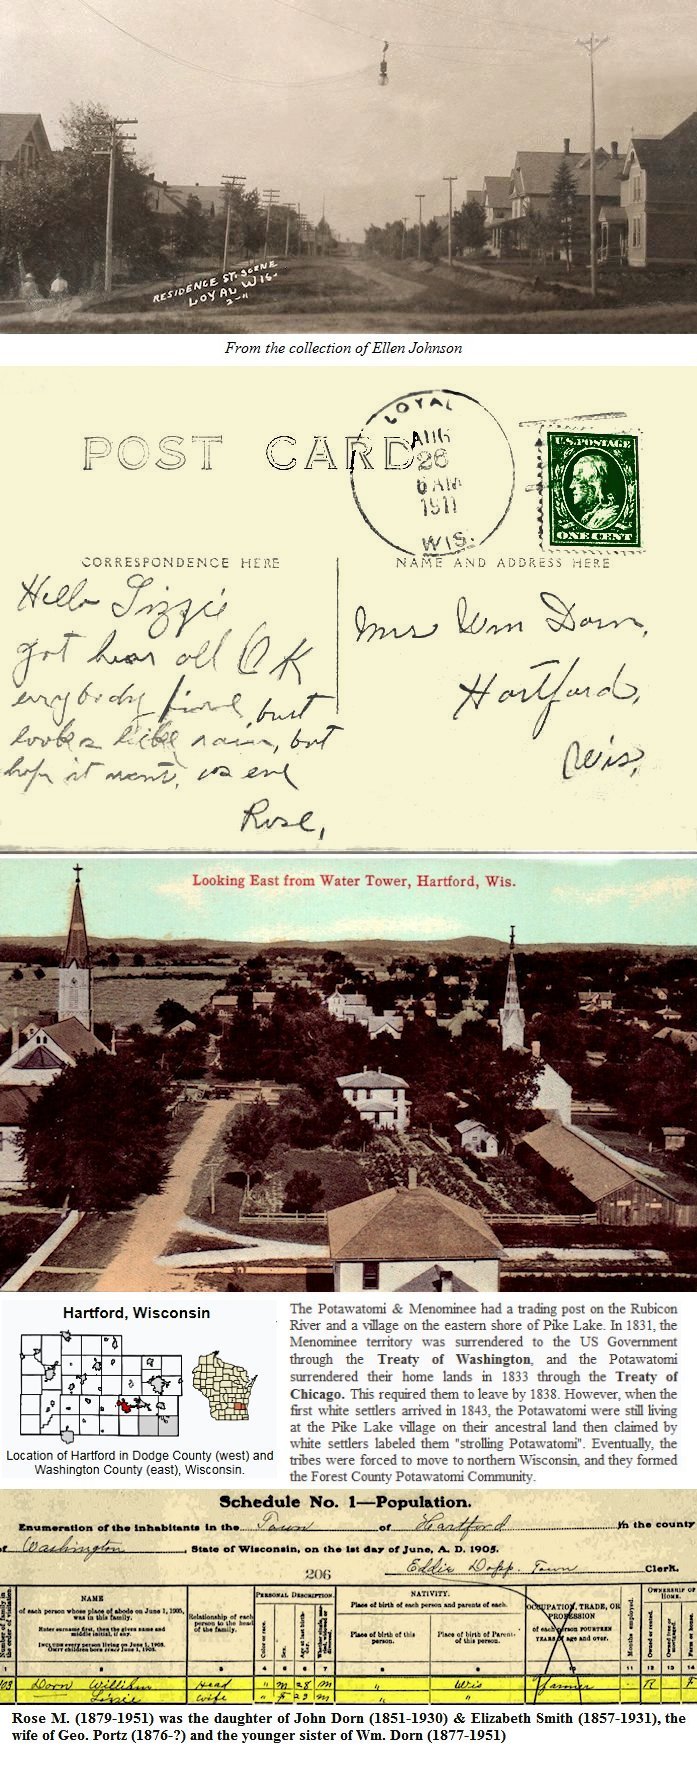 RESIDENCE ST. SCENE
LOYAL WIS.
2-11
From the collection of Ellen Johnson
POST CARD
LOYAL
AUG
26
6 AM
1911
WIS.
U.S. POSTAGE
ONE CENT
CORRESPONDENCE HERE
NAME AND ADDRESS HERE
Hello Lizzie
got hear all OK
everybody fine, but
looks like rain, but
hope it wont,
Rose,
Mrs Wm Dorn,
Hartford,
Wis,
Looking East from Water Tower, Hartford, Wis.
Hartford, Wisconsin
Location of Hartford in Dodge County (west) and
Washington County (east), Wisconsin.
The Potawatomi & Menominee had a trading post on the Rubicon
River and a village on the eastern shore of Pike Lake. In 1831, the
Menominee territory was surrendered to the US Government
through the Treaty of Washington, and the Potawatomi
surrendered their home lands in 1833 through the Treaty of
Chicago. This required them to leave by 1838. However, when the
first white settlers arrived in 1843, the Potawatomi were still living
at the Pike Lake village on their ancestral land then claimed by
white settlers labeled them "strolling Potawatomi". Eventually, the
tribes were forced to move to northern Wisconsin, and they formed
the Forest County Potawatomi Community.
Schedule No. 1—Population.
Enumeration of the inhabitants in the Town of Hartford in the county
of Washington, State of Wisconsin, on the 1st day of June, A. D. 1905.
206
Eddie Dopp. Town Clerk.
NAME
of each person whose place of abode on June 1, 1905,
was in this family.
Enter surname first, then the given name and
middle initial, if any.
INCLUDE every person living on June 1, 1905.
OMIT children born since June 1, 1905.
Relationship of each
person to the head
of the family.
PERSONAL DESCRIPTION.
Color or race.
Sex.
NATIVITY.
Place of birth of each person and parents of each.
Place of birth of this
person.
Place of birth of Parents
of this person.
OCCUPATION, TRADE, OR
PROFESSION
of each person FOURTEEN
YEARS of age and over.
Months employed.
OWNERSHIP OF
HOME.
Owned or rented.
Owned free or
mortgaged.
Farm or house.
1 2 3 4 5 6 7 8 9 10 11 12 13 14
103 Dorn William Head " m 28 m " Wis Farmer R F
Lizzie Wife " F 23 m " "
Rose M. (1879-1951) was the daughter of John Dorn (1851-1930) & Elizabeth Smith (1857-1931), the
wife of Geo. Portz (1876-?) and the younger sister of Wm. Dorn (1877-1951)